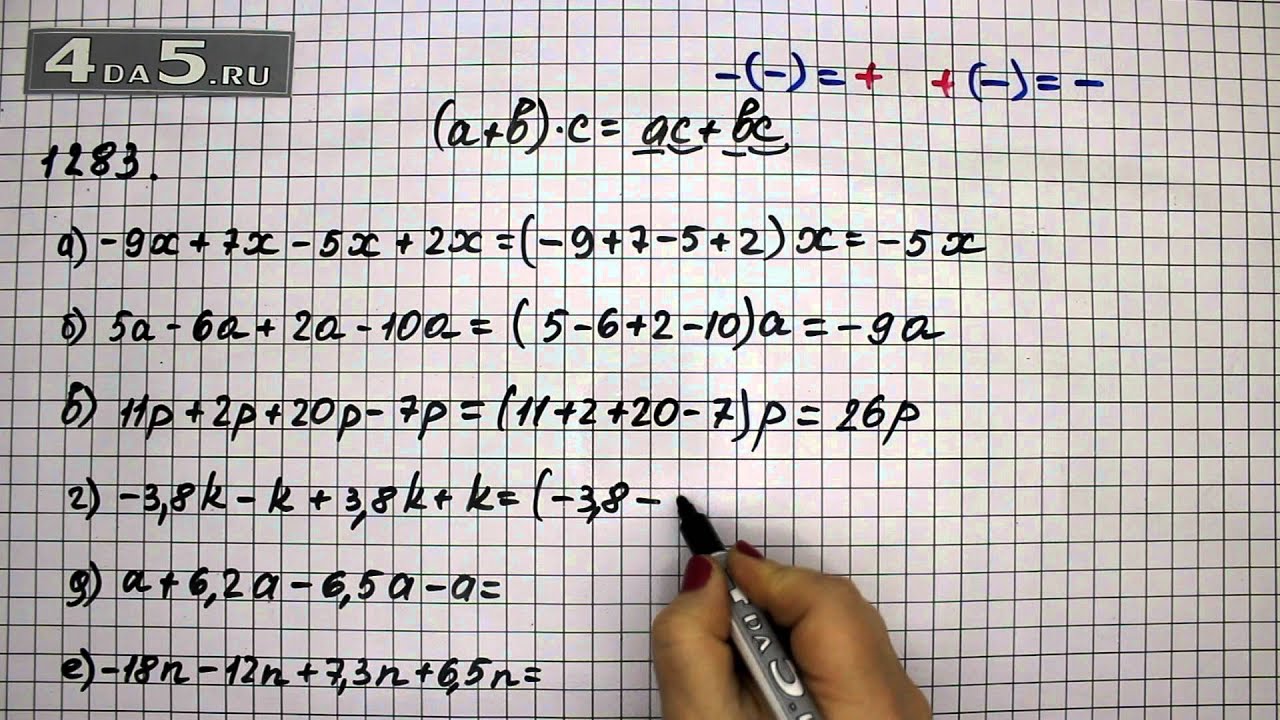 4DA5.RU
-(-)=+ +(-)=-
(a+b)·c=ac+bc
1283.
а) -9x+7x-5x+2x=(-9+7-5+2)x=-5x
б) 5a-6a+2a-10a=(5-6+2-10)a=-9a
б) 11p+2p+20p-7p=(11+2+20-7)p=26p
г) -3,8k-k+3,8k+k=(-3,8-
д) a+6,2a-6,5a-a=
е) -18n-12n+7,3n+6,5n=